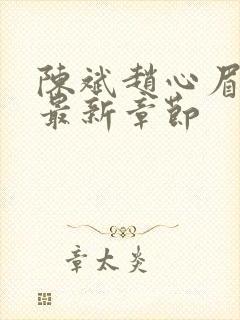 陳斌趙心眉
最新章節
章太炎